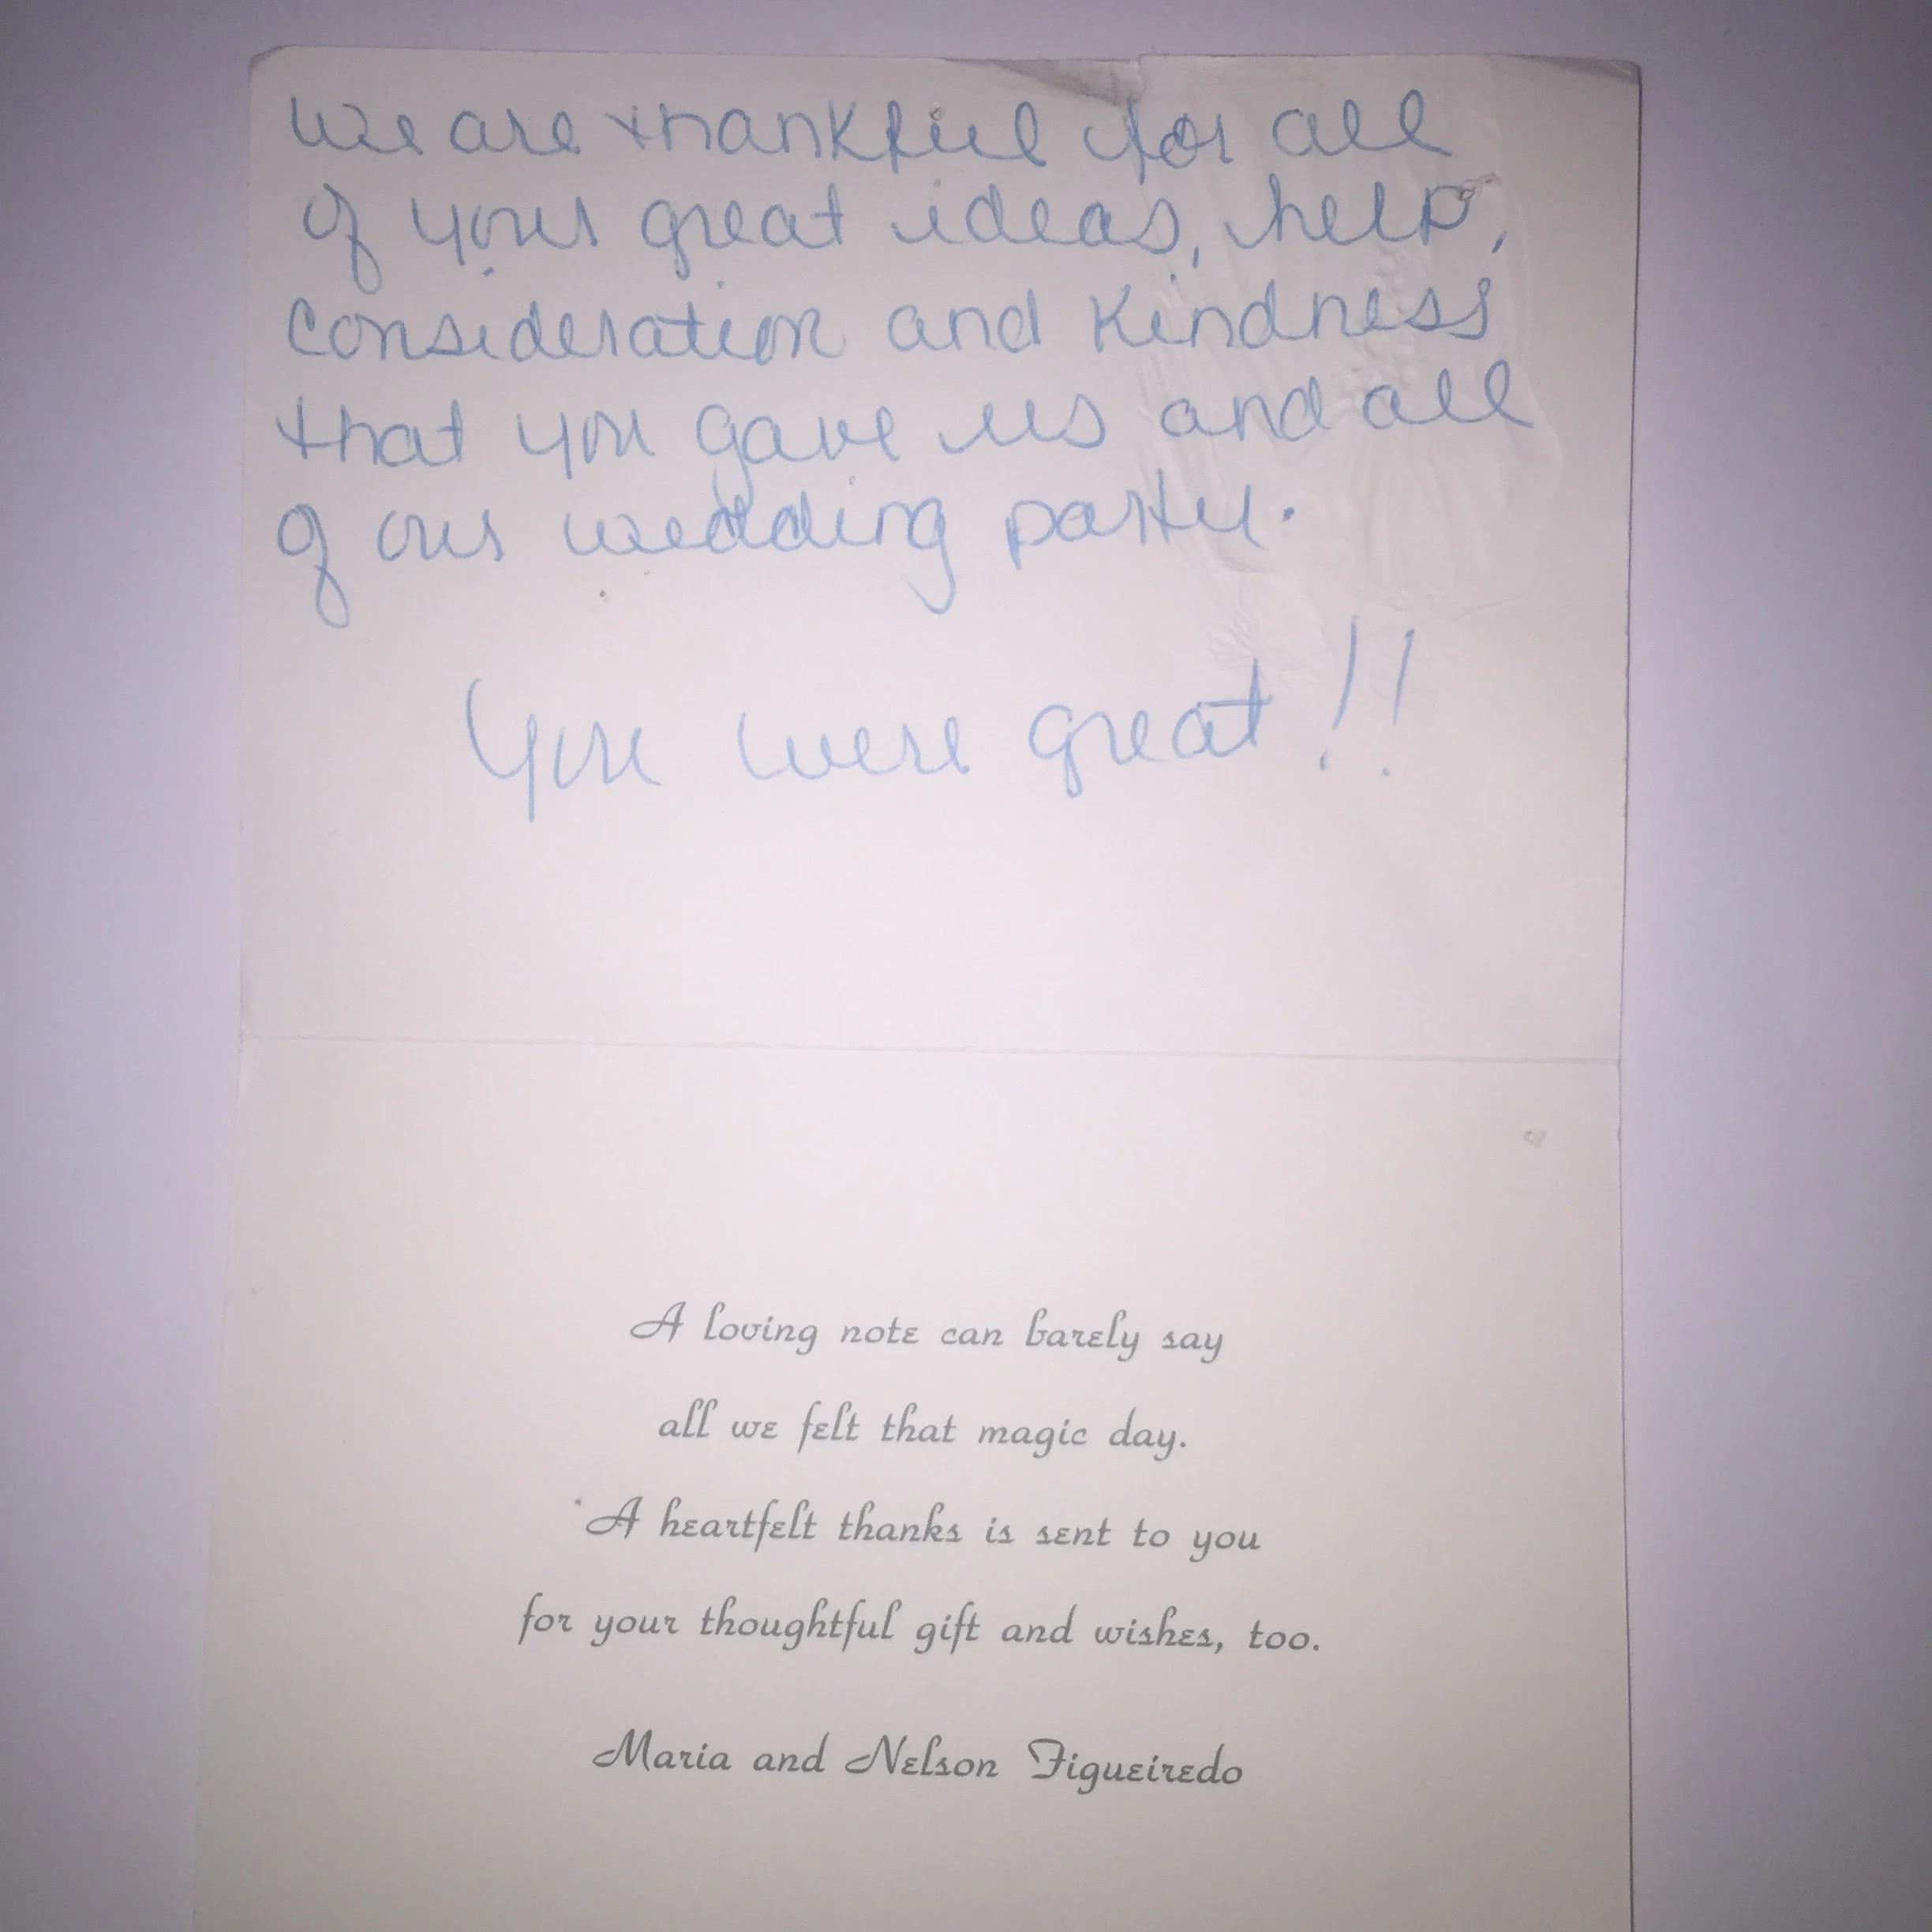 We are thankful for all
of your great ideas, help,
consideration and kindness
that you gave us and all
of our wedding party.
You were great!!
A loving note can barely say
all we felt that magic day.
A heartfelt thanks is sent to you
for your thoughtful gift and wishes, too.
Maria and Nelson Figueiredo